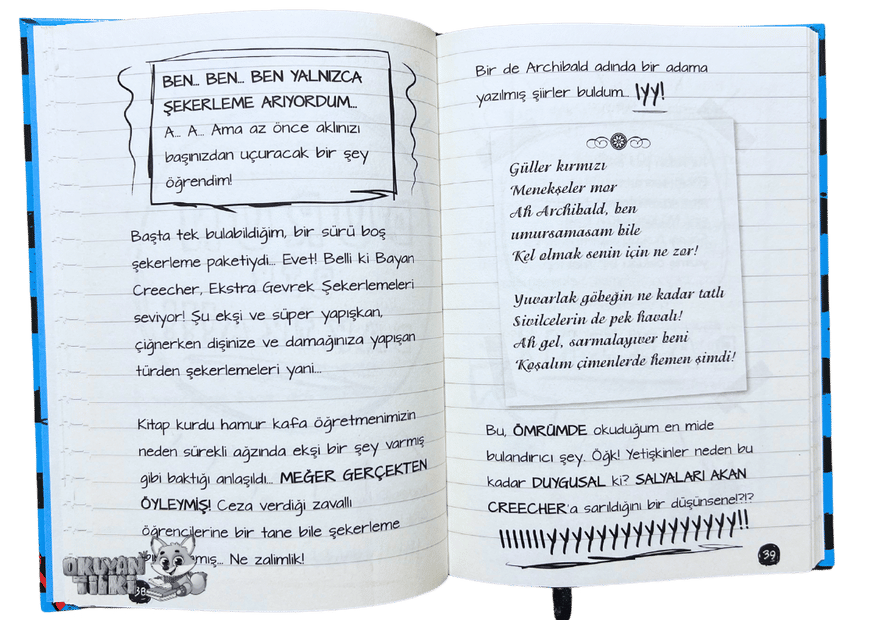 BEN... BEN... BEN YALNIZCA
ŞEKERLEME ARIYORDUM...
A... A... Ama az önce aklınızı
başınızdan uçuracak bir şey
öğrendim!
Başta tek bulabildiğim, bir sürü boş
şekerleme paketiydi... Evet! Belli ki Bayan
Creecher, Ekstra Gevrek Şekerlemeleri
seviyor! Şu ekşi ve süper yapışkan,
çiğnerken dişinize ve damağınıza yapışan
türden şekerlemeleri yani...
Kitap kurdu hamur kafa öğretmenimizin
neden sürekli ağzında ekşi bir şey varmış
gibi baktığı anlaşıldı... MEĞER GERÇEKTEN
ÖYLEYMİŞ! Ceza verdiği zavallı
öğrencilerine bir tane bile şekerleme
Ne zalimlik!
OKUYAN
TİLKİ
38
Bir de Archibald adında bir adama
yazılmış şiirler buldum... IYY!
Güller kırmızı
Menekşeler mor
Ah Archibald, ben
umursamasam bile
Kel olmak senin için ne zor!
Yuvarlak göbeğin ne kadar tatlı
Sivilcelerin de pek havalı!
Ah gel, sarmalayıver beni
Koşalım çimenlerde hemen şimdi!
Bu, ÖMRÜMDE okuduğum en mide
bulandırıcı şey. Öğk! Yetişkinler neden bu
kadar DUYGUSAL ki? SALYALARI AKAN
CREECHER'a sarıldığını bir düşünsene!?!?
IIIIIIIYYYYYYYYYYYYYYYY!!
39